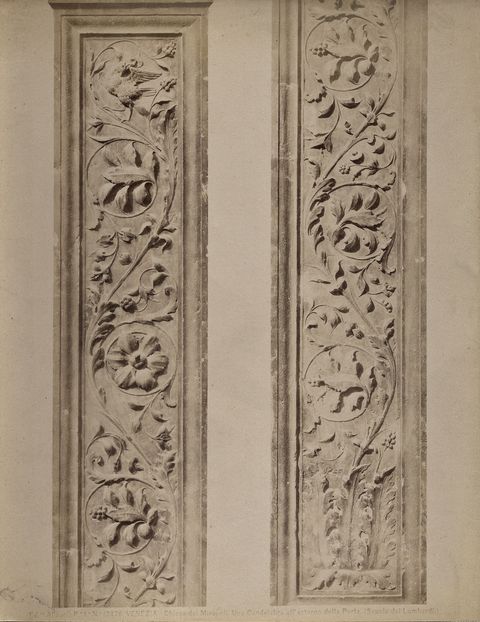 VENEZIA - Chiesa dei Miracoli. Una Candelabra all'esterno della Porta. (Scuola dei Lombardi)